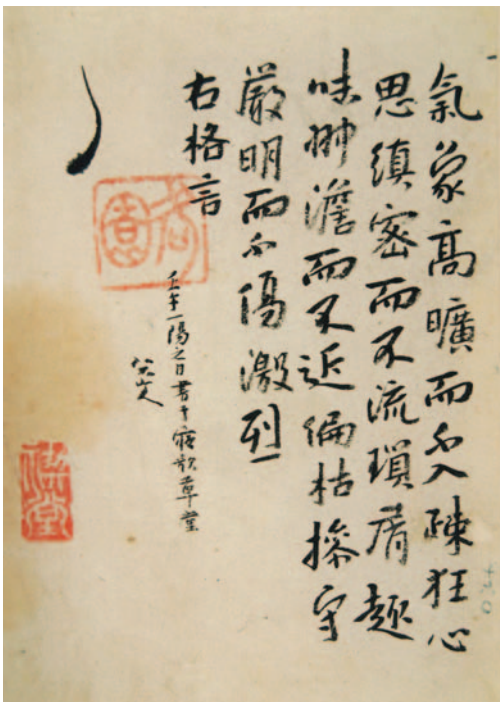 氣象高曠而不入疎狂心
思縝密而不流瑣屑趣
味翀澹而不近偏枯操守
嚴明而不傷激烈
右格言
壬午一陽之日書于寤歌草堂
八大山人